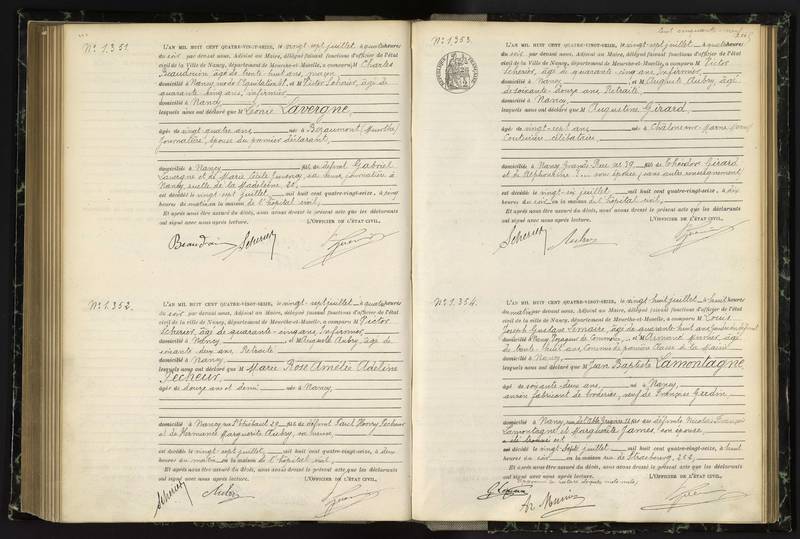 N° 1.351.
L'AN MIL HUIT CENT QUATRE-VINGT-SEIZE, le vingt-sept juillet à quatre heures
du soir par devant nous, Adjoint au Maire, délégué faisant fonctions d'officier de l'état
civil de la Ville de Nancy, département de Meurthe-et-Moselle, a comparu M Charles
Beaudouin âgé de trente huit ans, maçon
domicilié à Nancy et Victor Scherier, âgé de
quarante cinq ans, infirmier
domicilié à Nancy
lesquels nous ont déclaré que M Léonie Lavergne,
âgée de vingt quatre ans née à Bezaumont (Meurthe)
journalière, épouse du premier déclarant,
domiciliée à Nancy fille de défunt Gabriel
Lavergne et de Marie Cécile sa veuve, journalière à
Nancy, ruelle de la Madeleine,
est décédée le vingt-sept juillet, mil huit cent quatre-vingt-seize, à cinq
heures du matin en la maison de l'hôpital civil,
Et après nous être assuré du décès, nous avons dressé le présent acte que les déclarants
ont signé avec nous après lecture. L'OFFICIER DE L'ÉTAT CIVIL,
Beaudouin Scherier
N° 1.352.
L'AN MIL HUIT CENT QUATRE-VINGT-SEIZE, le vingt-sept juillet à quatre heures
du soir par devant nous, Adjoint au Maire, délégué faisant fonctions d'officier de l'état
civil de la Ville de Nancy, département de Meurthe-et-Moselle, a comparu M Victor
Scherier, âgé de quarante-cinq ans, infirmier
domicilié à Nancy et Auguste Aubry, âgé de
soixante douze ans, Retraité
domicilié à Nancy
lesquels nous ont déclaré que M Marie Rose Amélie Adeline
Pecheur,
âgée de douze ans et demi née à Nancy
domiciliée à Nancy rue St Thiébaut 29 fille de défunt Paul Henry Pecheur
et de Hermance Marguerite Aubry, sa veuve
est décédée le vingt-sept juillet, mil huit cent quatre-vingt-seize, à deux
heures du matin en la maison de l'hôpital civil,
Et après nous être assuré du décès, nous avons dressé le présent acte que les déclarants
ont signé avec nous après lecture. L'OFFICIER DE L'ÉTAT CIVIL,
Scherier Aubry
cent cinquante-neuf
N° 1.353.
L'AN MIL HUIT CENT QUATRE-VINGT-SEIZE, le vingt-sept juillet à quatre heures
du soir par devant nous, Adjoint au Maire, délégué faisant fonctions d'officier de l'état
civil de la Ville de Nancy, département de Meurthe-et-Moselle, a comparu M Victor
Scherier, âgé de quarante-cinq ans, infirmier
domicilié à Nancy et Auguste Aubry, âgé
de soixante-douze ans Retraité
domicilié à Nancy
lesquels nous ont déclaré que M Augustine Girard,
âgée de vingt-sept ans née à Châlons sur Marne (Marne)
Couturière, célibataire,
domiciliée à Nancy Grande Rue n° 39 fille de Théodore Girard
et de Alphonsine P... son épouse, (sans autre renseignement)
est décédée le vingt-six juillet, mil huit cent quatre-vingt-seize, à dix
heures du soir en la maison de l'hôpital civil,
Et après nous être assuré du décès, nous avons dressé le présent acte que les déclarants
ont signé avec nous après lecture. L'OFFICIER DE L'ÉTAT CIVIL,
Scherier Aubry
N° 1.354.
L'AN MIL HUIT CENT QUATRE-VINGT-SEIZE, le vingt-huit juillet à huit heures
du matin par devant nous, Adjoint au Maire, délégué faisant fonctions d'officier de l'état
civil de la Ville de Nancy, département de Meurthe-et-Moselle, a comparu M Louis
Joseph Gustave Lemaire, âgé de quarante huit ans,
domicilié à Nancy, Voyageur de Commerce, et Armand
de trente huit ans, Commis de
domicilié à Nancy
lesquels nous ont déclaré que M Jean Baptiste Lamontagne
âgé de soixante deux ans, né à Nancy,
ancien fabricant de broderies, veuf de Françoise Gerdin
domicilié à Nancy fils des défunts Nicolas François
Lamontagne et Marguerite James, son épouse
est décédé le vingt-sept juillet mil huit cent quatre-vingt-seize, à huit
heures du soir en la maison rue de Strasbourg,
Et après nous être assuré du décès, nous avons dressé le présent acte que les déclarants
ont signé avec nous après lecture. L'OFFICIER DE L'ÉTAT CIVIL,